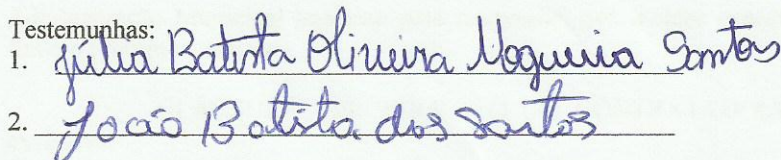 Testemunhas:
1. Júlia Batista Oliveira Nogueira Santos
2. João Batista dos Santos